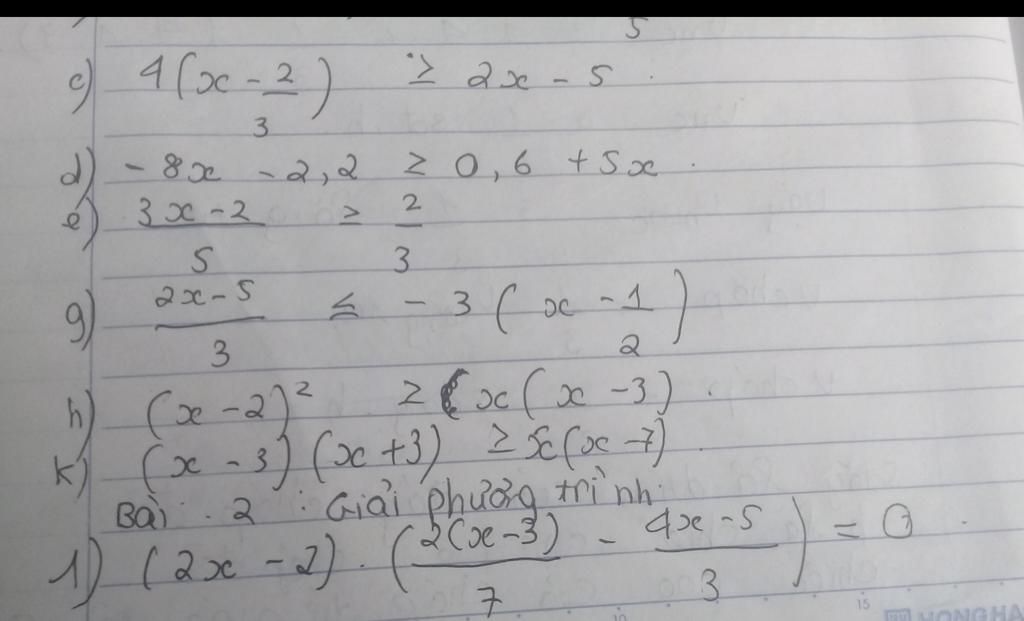 5
c) 4(x - 2/3) ≥ 2x - 5.
d) -8x - 2,2 ≥ 0,6 + 5x.
e) (3x - 2)/5 ≥ 2/3
g) (2x - 5)/3 ≤ -3(x - 1/2)
h) (x - 2)² ≥ x(x - 3).
k) (x - 3)(x + 3) ≥ x(x - 7).
Bài. 2: Giải phương trình.
1) (2x - 2).(2(x - 3)/7 - (4x - 5)/3) = 0.
10 15
HONG HA